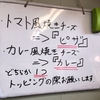 ・トマト風焼きチーズ
⇒『ピザ』
・カレー風焼きチーズ
⇒『カレー』
どちらか1つ
トッピングの際お願いします